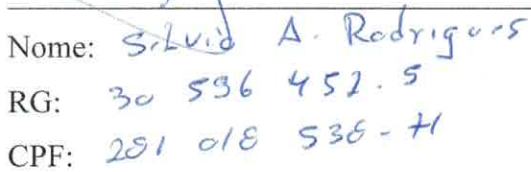 Nome: Silvia A. Rodrigues
RG: 30 596 452.5
CPF: 281 018 538-